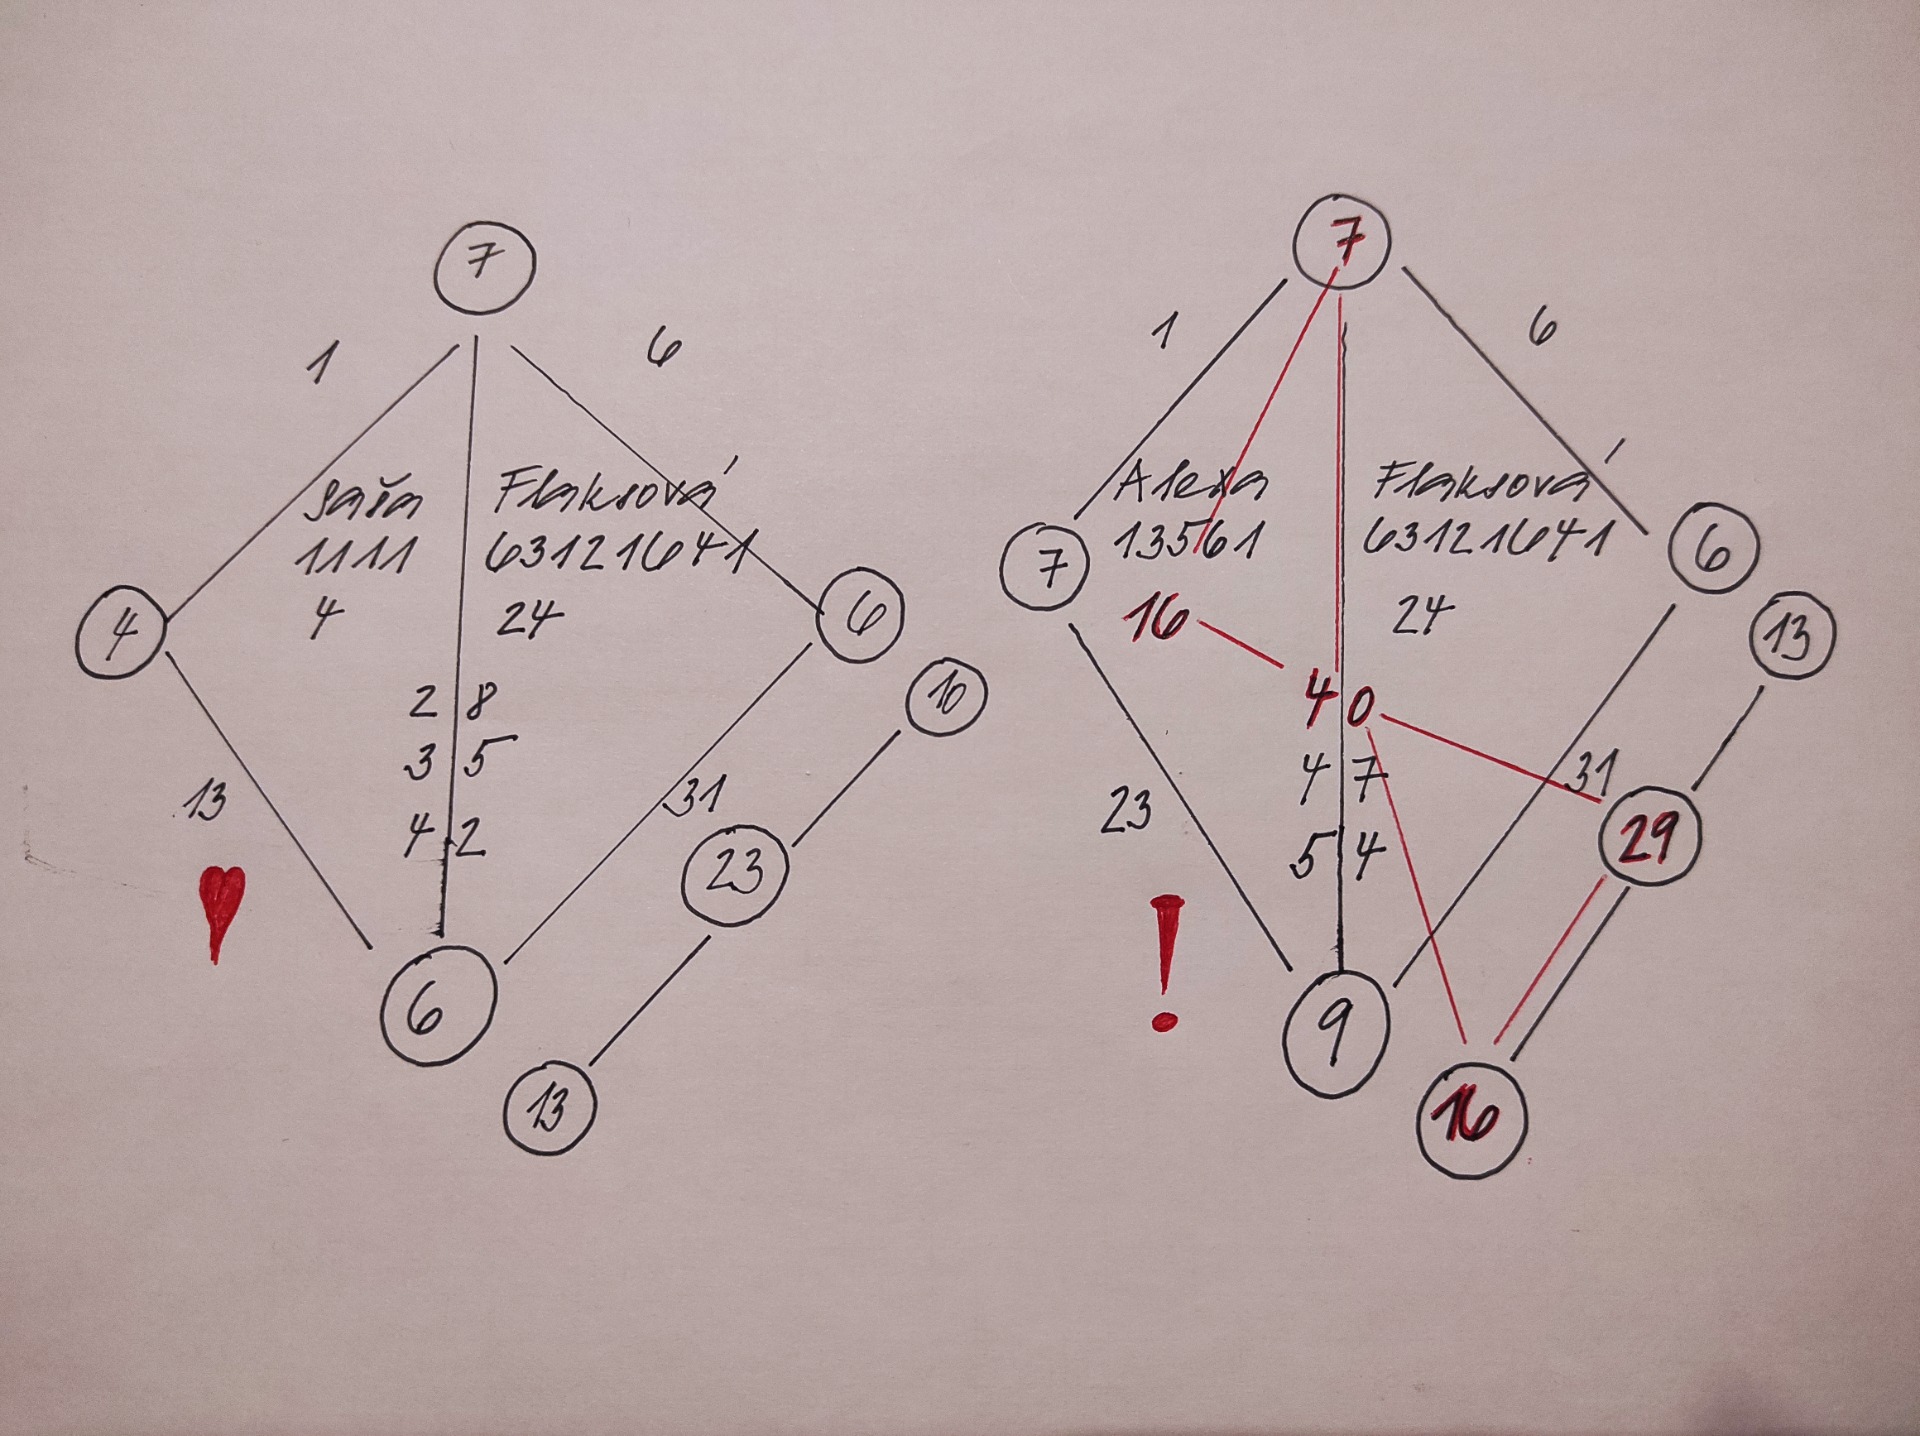 7
1 6
Saša Flaksová
1111 63121641
4 24
4
6
10
2 8
3 5
4 2
13
31
23
6
13
7
1 6
Alexa Flaksová
13561 63121641
16 24
7
6
13
4 0
4 7
5 4
23
31
29
!
9
16